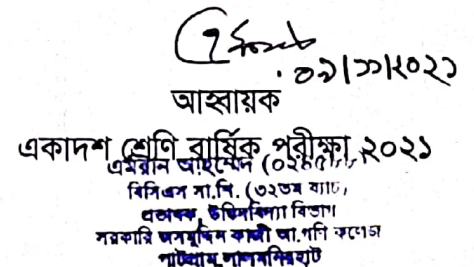 ০৯/১১/২০২১
আহ্বায়ক
একাদশ শ্রেণি বার্ষিক পরীক্ষা ২০২১
এমরান আহম্মেদ
বিসিএস সা.শি. (৩২তম ব্যাচ)
প্রভাষক, উদ্ভিদবিদ্যা বিভাগ
সরকারি জসমুদ্দিন কাজী আ.গনি কলেজ
পাটগ্রাম, লালমনিরহাট